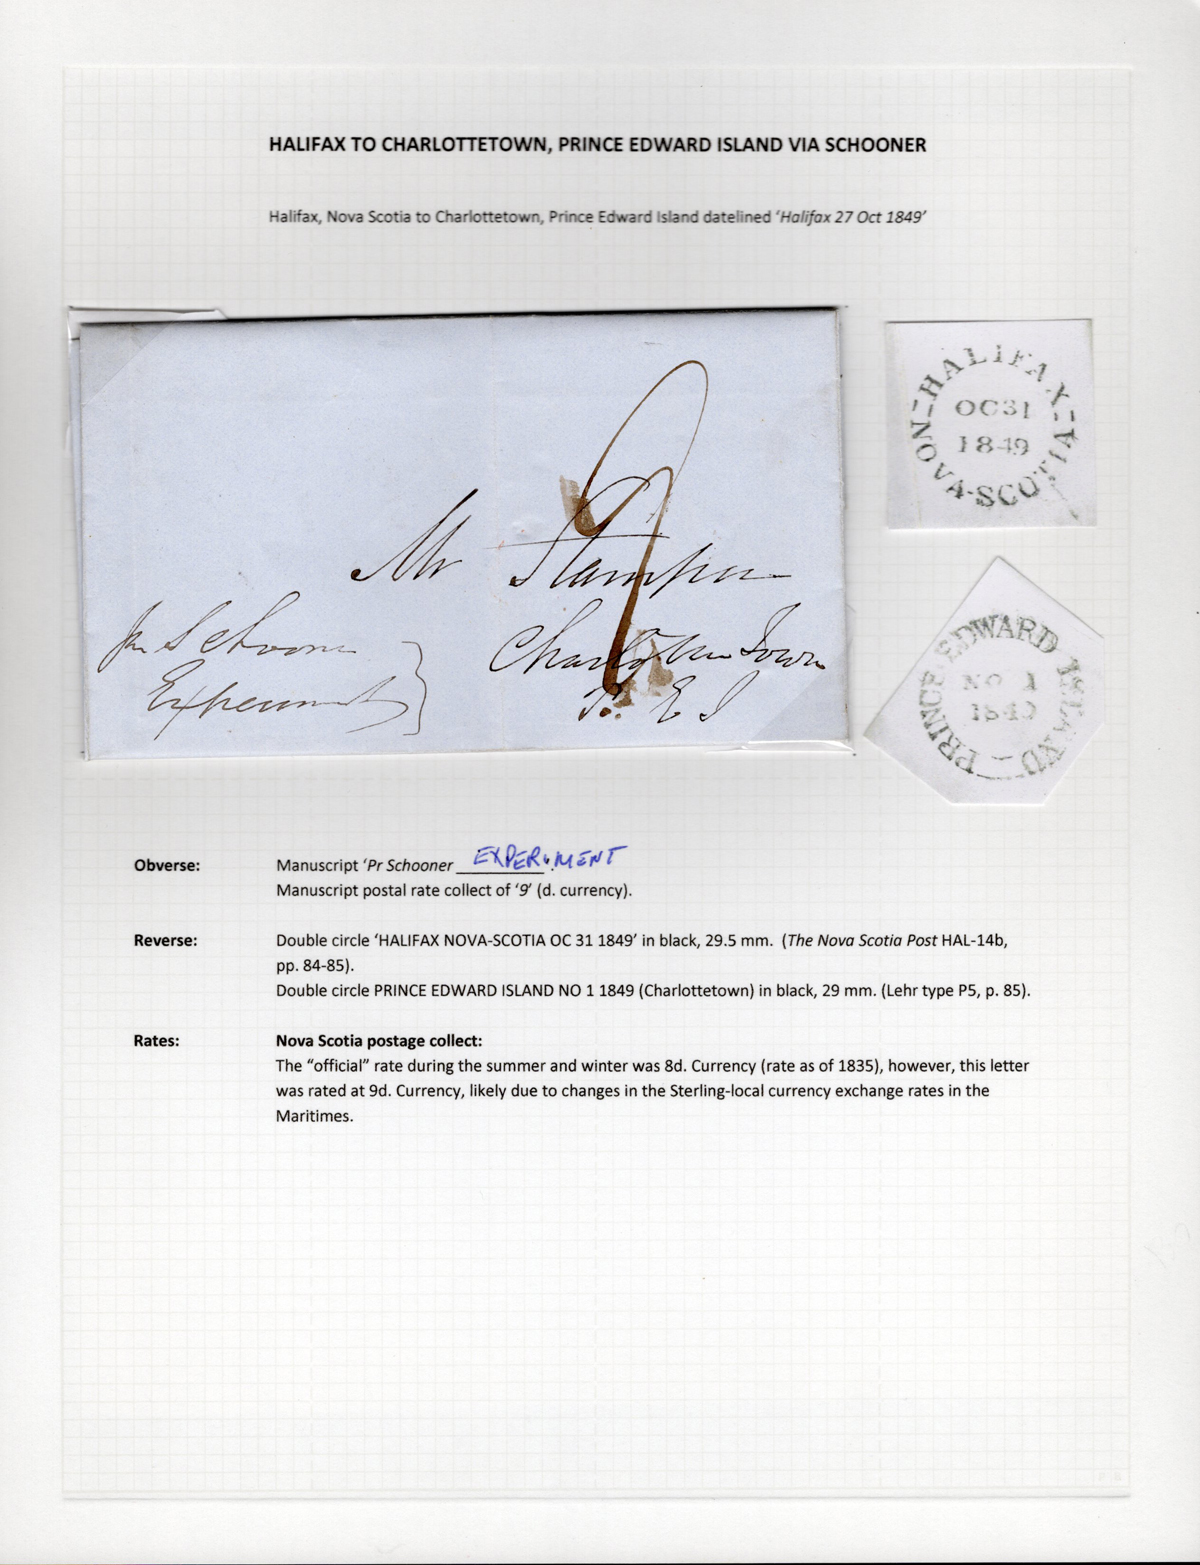 HALIFAX TO CHARLOTTETOWN, PRINCE EDWARD ISLAND VIA SCHOONER
Halifax, Nova Scotia to Charlottetown, Prince Edward Island datelined ‘Halifax 27 Oct 1849’
9
Mr Stamper
pr Schooner
Experiment
Charlotte Town
P. E I
HALIFAX
OC 31
1849
NOVA-SCOTIA
PRINCE EDWARD ISLAND
NO 1
1849
Obverse: Manuscript ‘Pr Schooner EXPERIMENT
Manuscript postal rate collect of ‘9’ (d. currency).
Reverse: Double circle ‘HALIFAX NOVA-SCOTIA OC 31 1849’ in black, 29.5 mm. (The Nova Scotia Post HAL-14b,
pp. 84-85).
Double circle PRINCE EDWARD ISLAND NO 1 1849 (Charlottetown) in black, 29 mm. (Lehr type P5, p. 85).
Rates: Nova Scotia postage collect:
The “official” rate during the summer and winter was 8d. Currency (rate as of 1835), however, this letter
was rated at 9d. Currency, likely due to changes in the Sterling-local currency exchange rates in the
Maritimes.